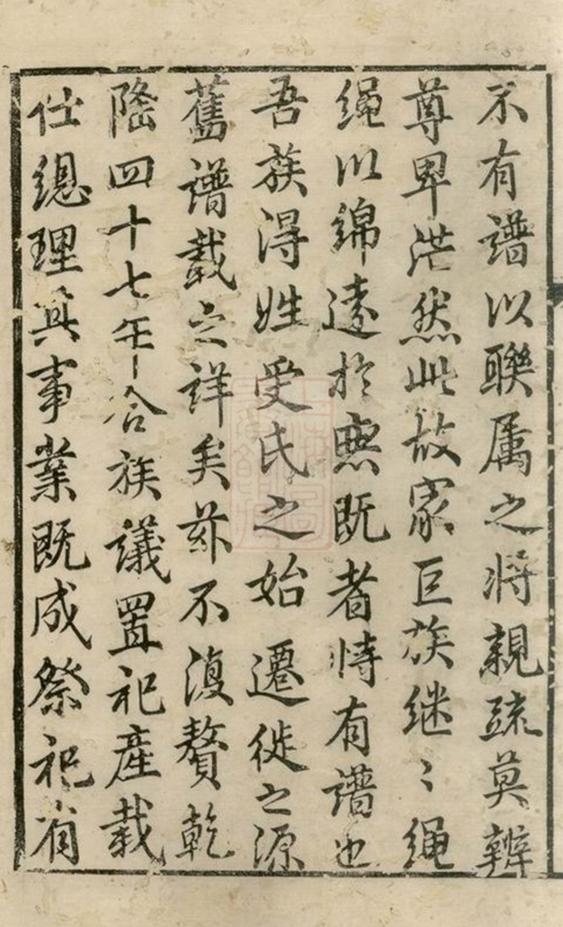 不有譜以聯属之将親疏莫辨
尊卑茫然此故家巨族继〻绳
绳以綿遠扵無既者恃有譜也
吾族得姓受氏之始遷徙之源
舊譜載之详矣茲不復贅乾
隆四十七年合族議置祀產載
仕總理其事業既成祭祀有